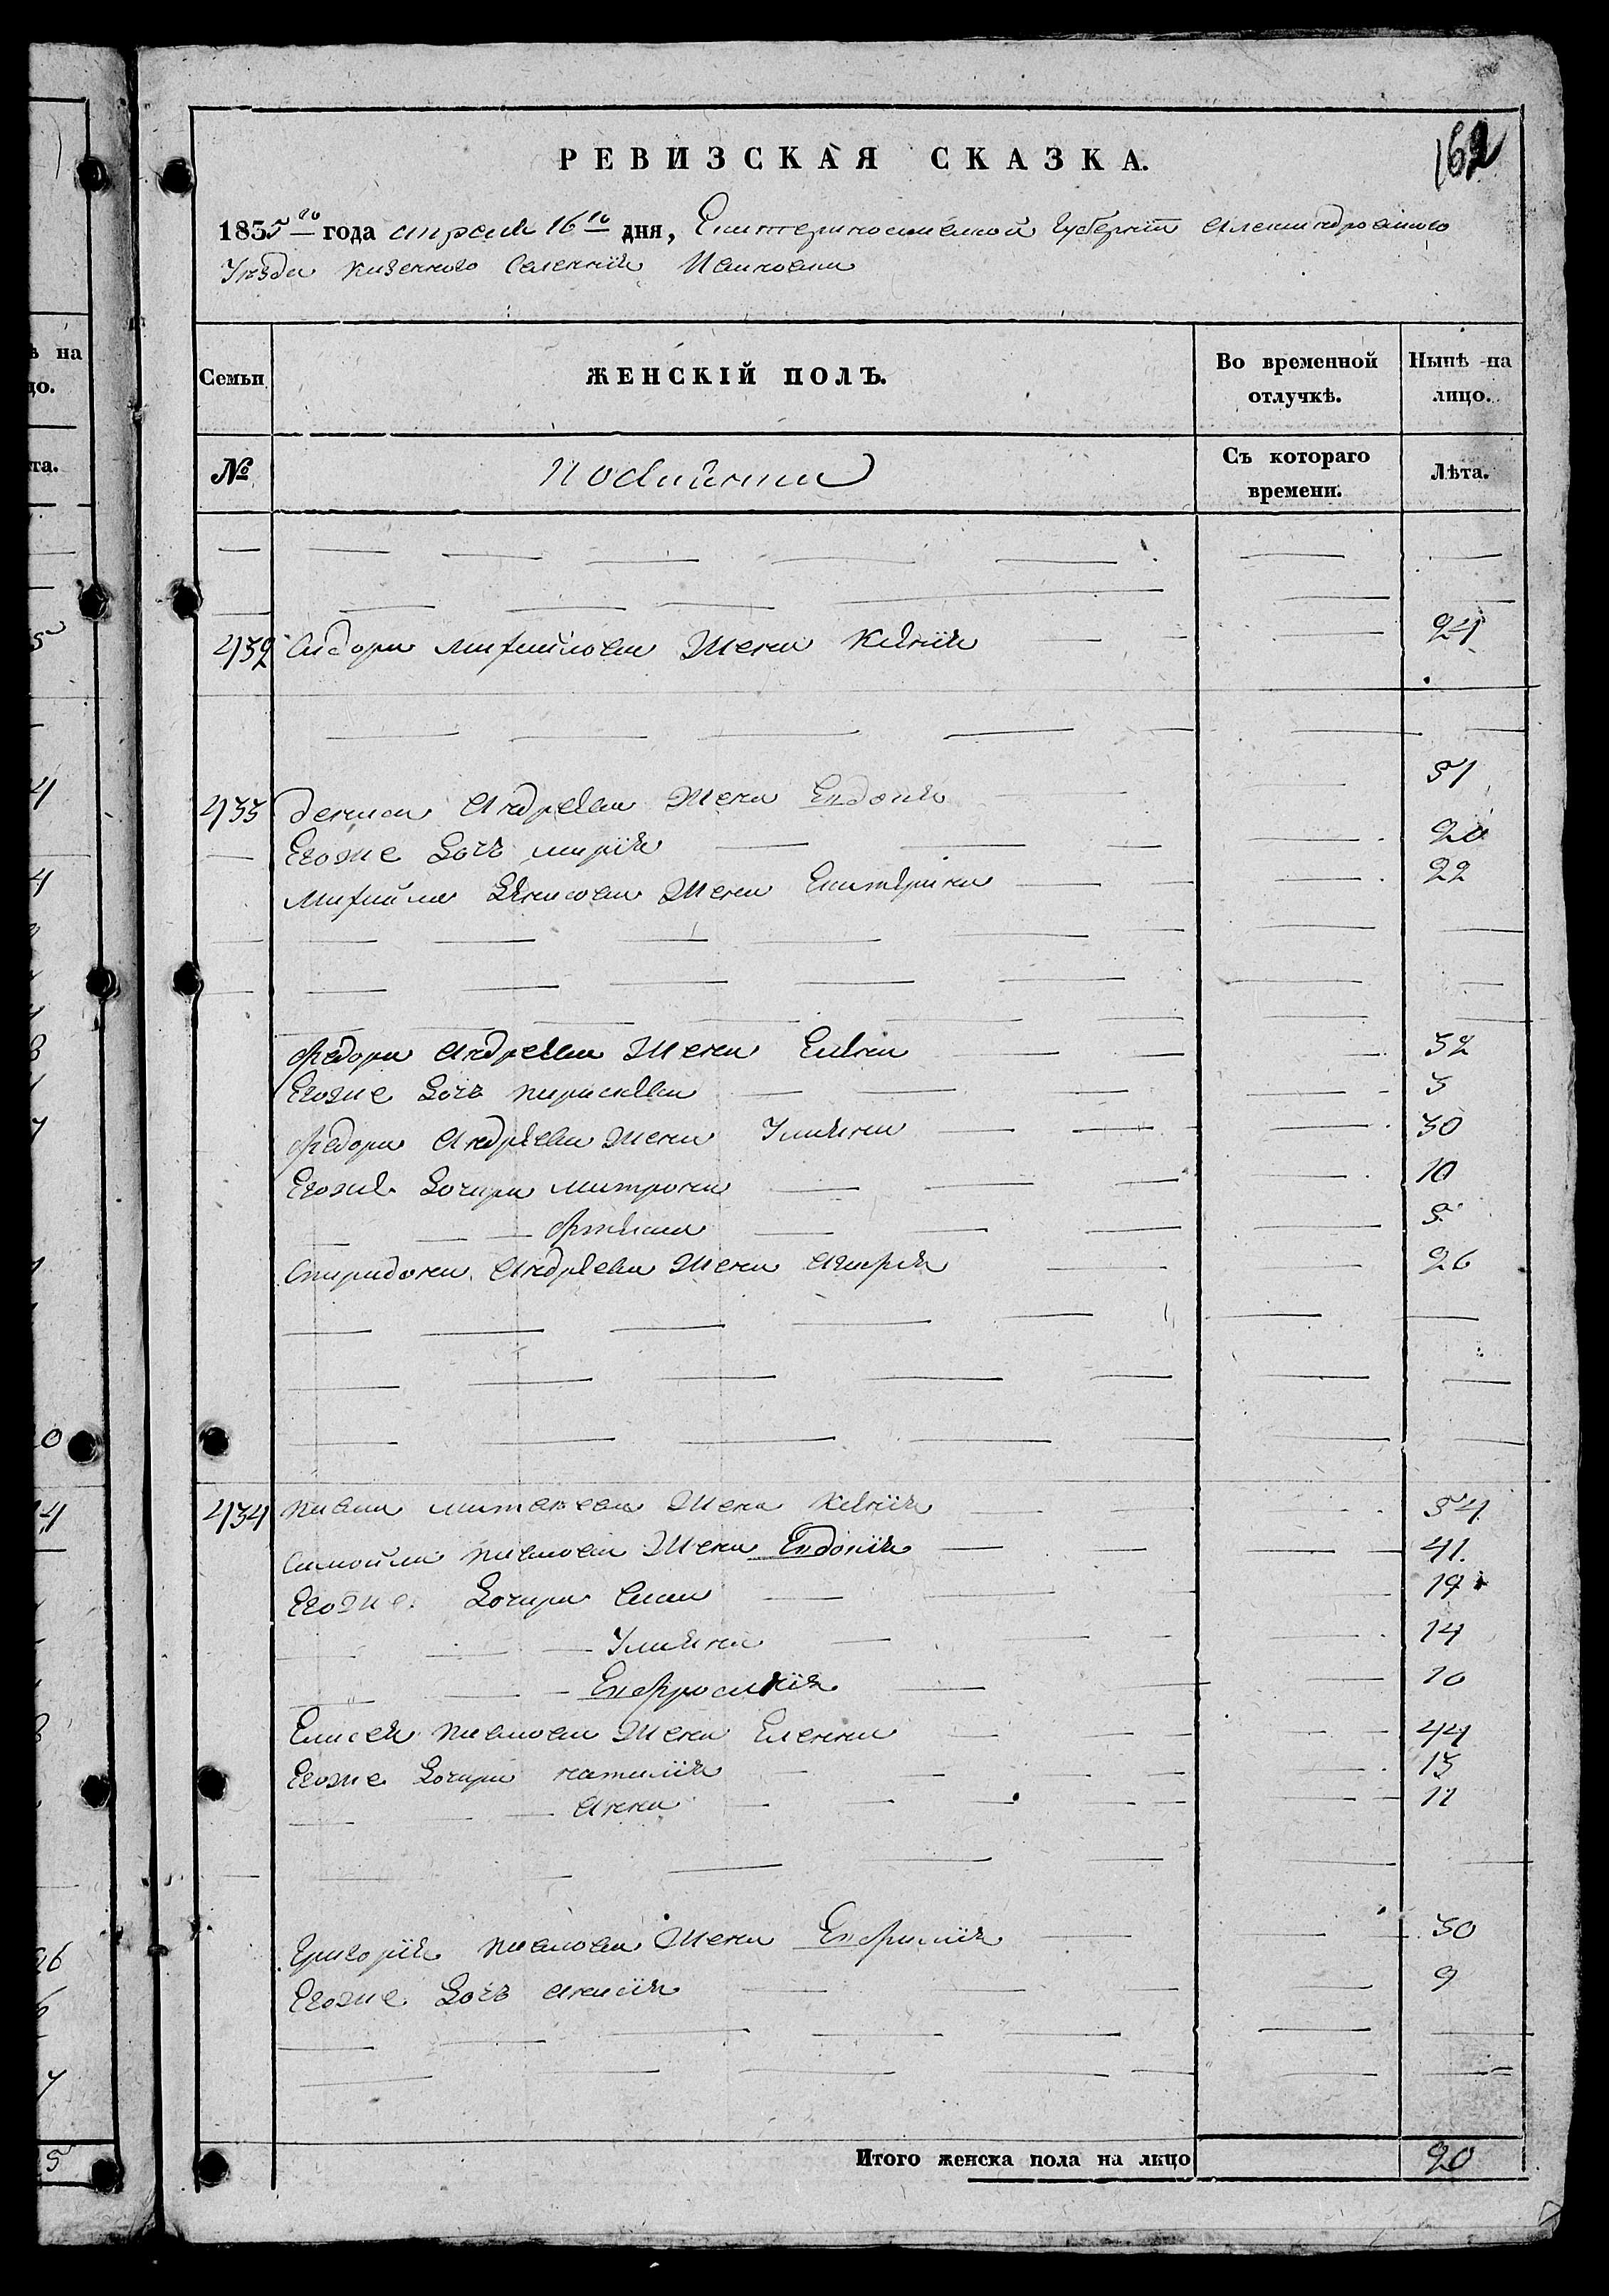 162
РЕВИЗСКАЯ СКАЗКА.
1835го года апреля 16го дня, Екатеринославской Губернии Александровского
Уезда казенного Селения
Семьи
ЖЕНСКІЙ ПОЛЪ.
Во временной отлучкѣ.
Нынѣ на лицо.
№
Съ котораго времени.
Лѣта.
432 Сидора Михайлова Жена Ксения 24
433 Дениса Андреева Жена Евдокия 51
Егоже Дочь Мария 20
Михайла Денисова Жена Екатерина 22
Федора Андреева Жена Елена 32
Егоже Дочь Параскева 3
Федора Андреева Жена Ульяна 30
Егоже Дочери Матрона 10
Спиридона Андреева Жена Агафия 26
434 Павла Матвеева Жена Ксения 54
Самойла Павлова Жена Евдокия 41
Егоже Дочери 19
Ульяна 14
Евфросиния 10
Елисея Павлова Жена Еленна 44
Егоже Дочери Наталия 13
Анна 11
Григория Павлова Жена Евфимия 30
Егоже Дочь 9
Итого женска пола на лицо 20
ѣ на
цо.
та.